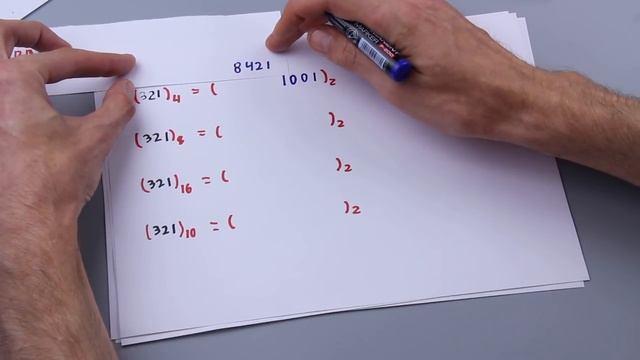 8421
(321)₄ = ( 1001)₂
(321)₈ = ( )₂
(321)₁₆ = ( )₂
(321)₁₀ = ( )₂